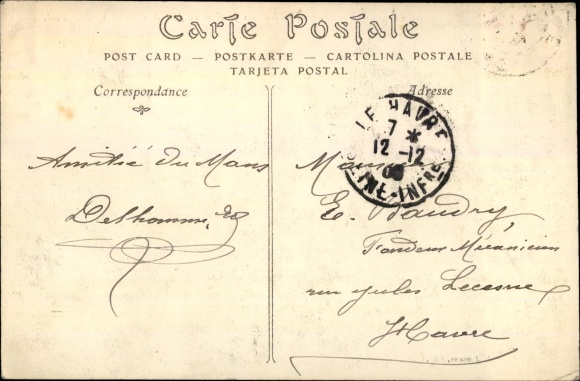 Carte Postale
POST CARD — POSTKARTE — CARTOLINA POSTALE
TARJETA POSTAL
Correspondance
Adresse
LE HAVRE
7 *
12 -12
SEINE-INFRE
Amitié du Mans
Delhomme
Monsieur
E. Baudry
Fondeur Mécanicien
rue Jules Lecesne
Havre